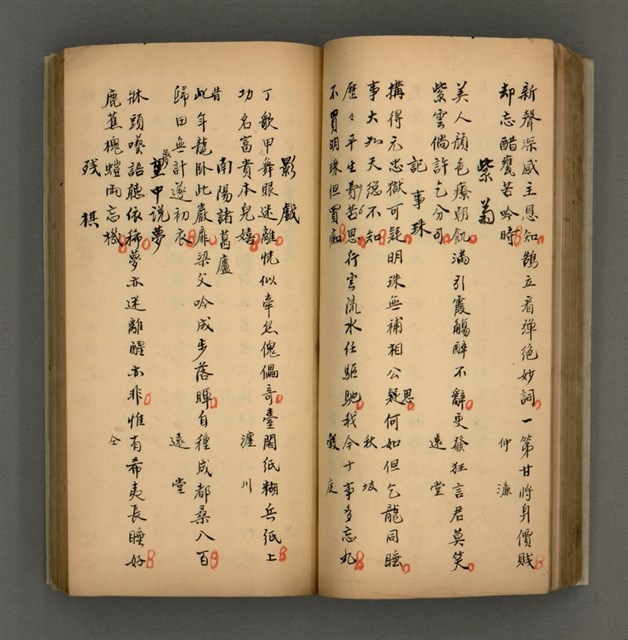 新聲深感主恩知鵲立看禪絕妙詞一第甘將身價賤
却忘醋甕苦吟時
仲濂
紫菊
美人顏色療朝飢滿引霞觴醉不辭更發狂言君莫笑
紫雲倘許乞分司
遠堂
記事珠
搆得元忠獄可疑明珠無補相公疑思何如但乞龍同睡
事大如天總不知
秋垓
歷々平生劳苦思行雲流水任驅馳我今十事多忘九
不買明珠但買痴
毅庭
影戲
丁歌甲舞眼迷離恍似牽絲傀儡奇臺閣紙糊兵紙上
功名富貴本兒嬉
滙川
南陽諸葛廬
昔年龍臥此巖扉梁父吟成步落暉自種成都桑八百
歸田無計遂初衣
遠堂
夢中說夢
牀頭囈語聽依稀夢亦迷離醒亦非惟有希夷長睡好
鹿蕉槐螘兩忘機
仝
殘棋